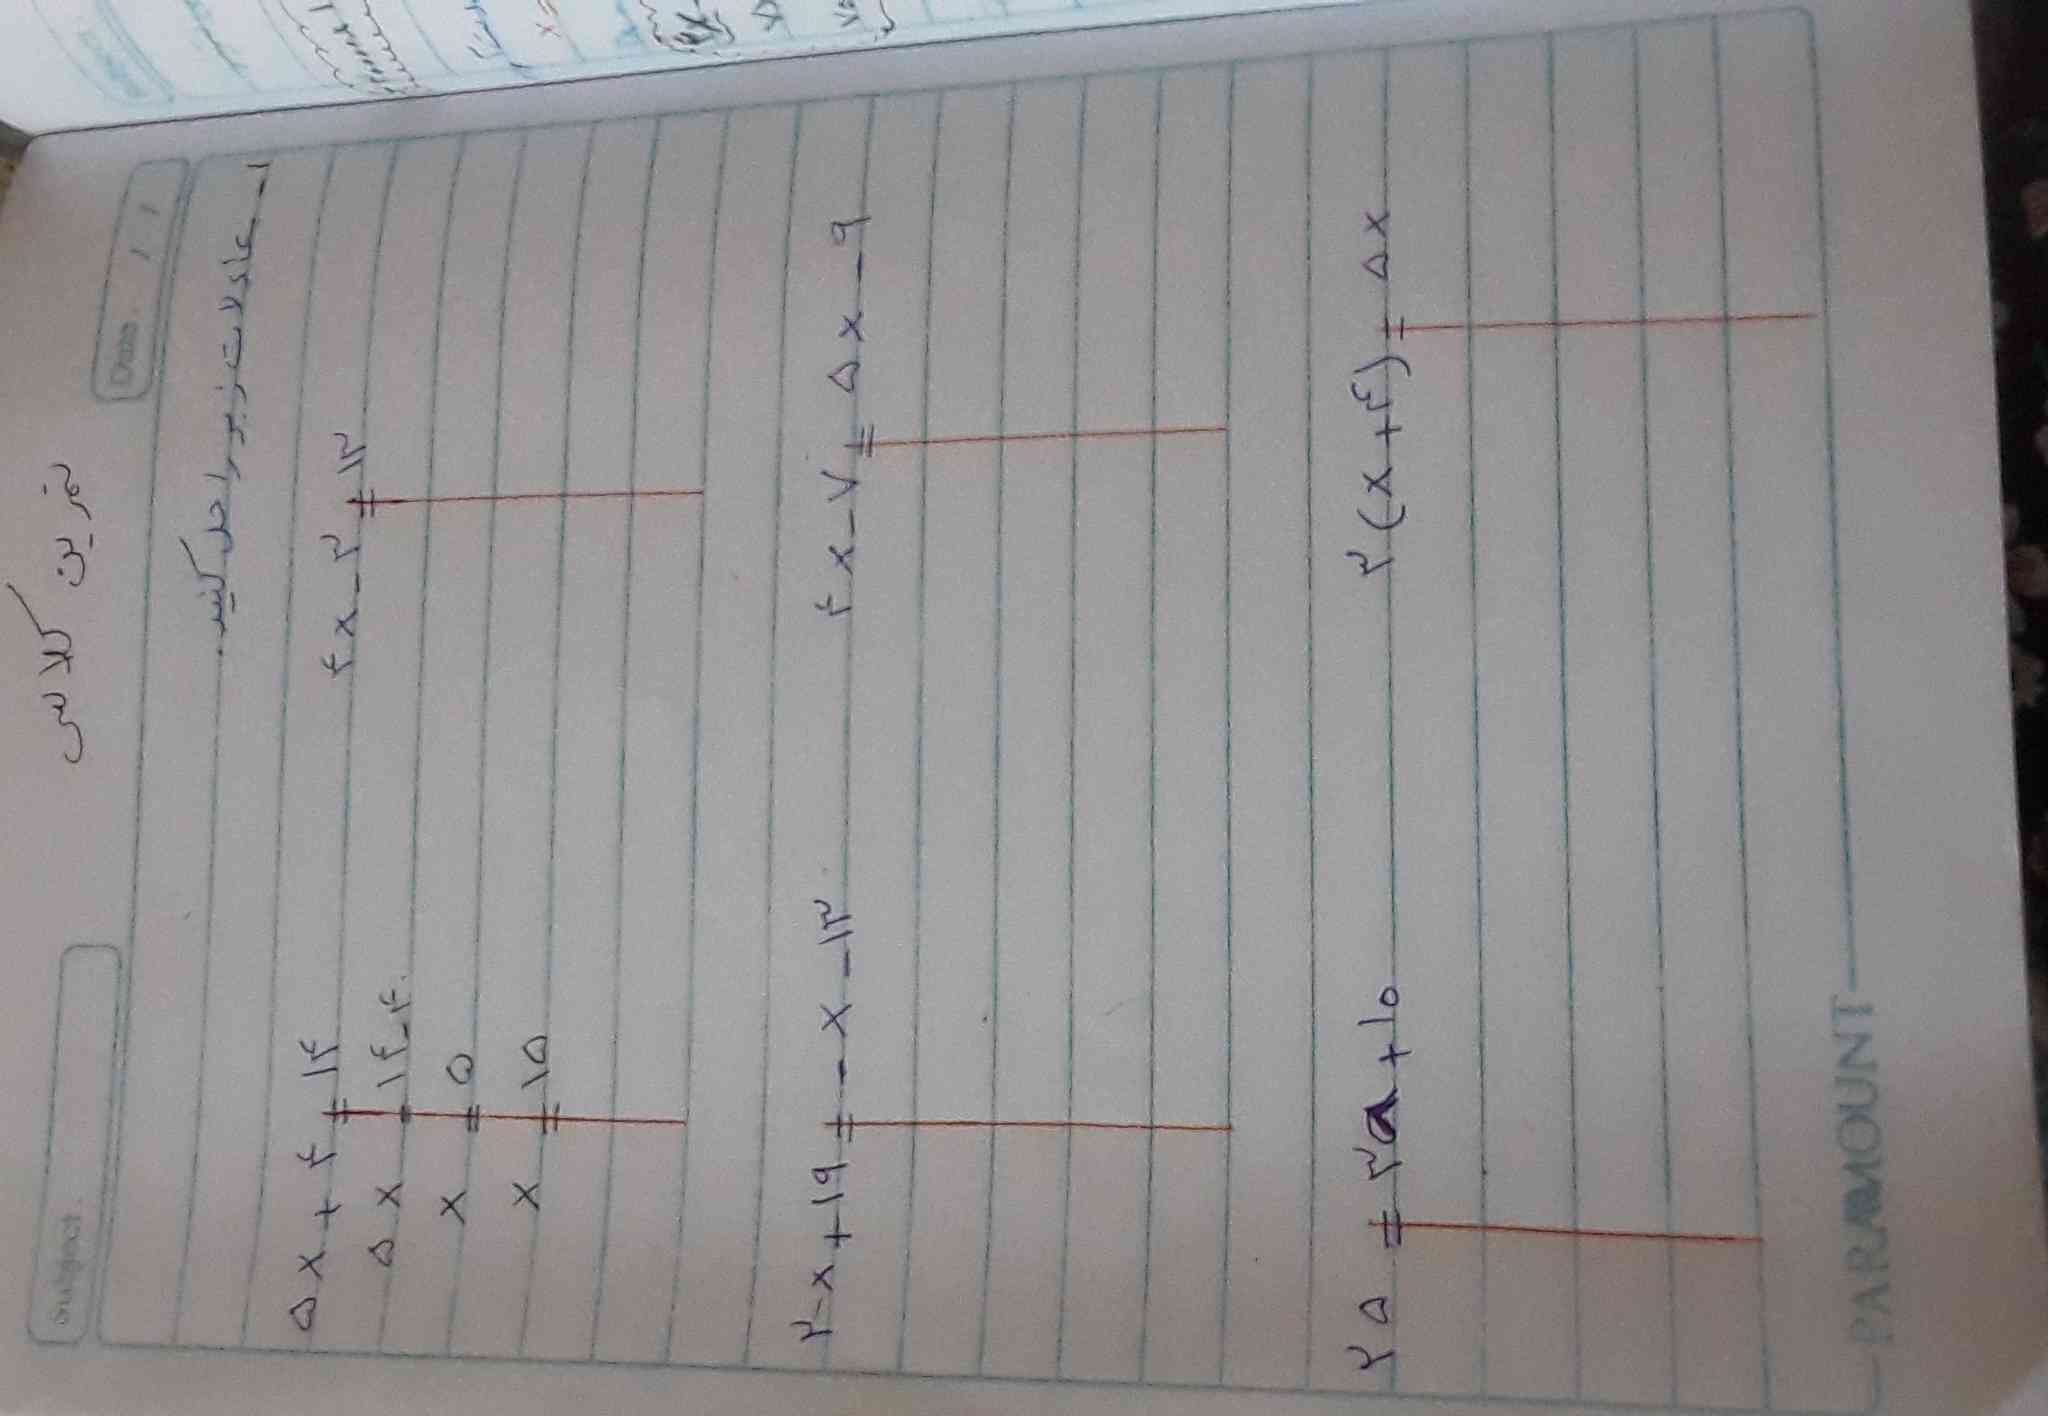 تمرین کلاس
Subject
Date
۱- معادلات زیر را حل کنید.
۵x + ۴ = ۱۴
۵x = ۱۴ - ۴
x = ۵
x = ۱۵
۴x - ۳ = ۱۳
۳x + ۱۹ = -x - ۱۳
۴x - ۷ = ۵x - ۹
۲۵ = ۳a + ۱۰
۳(x + ۴) = ۵x
PARAMOUNT